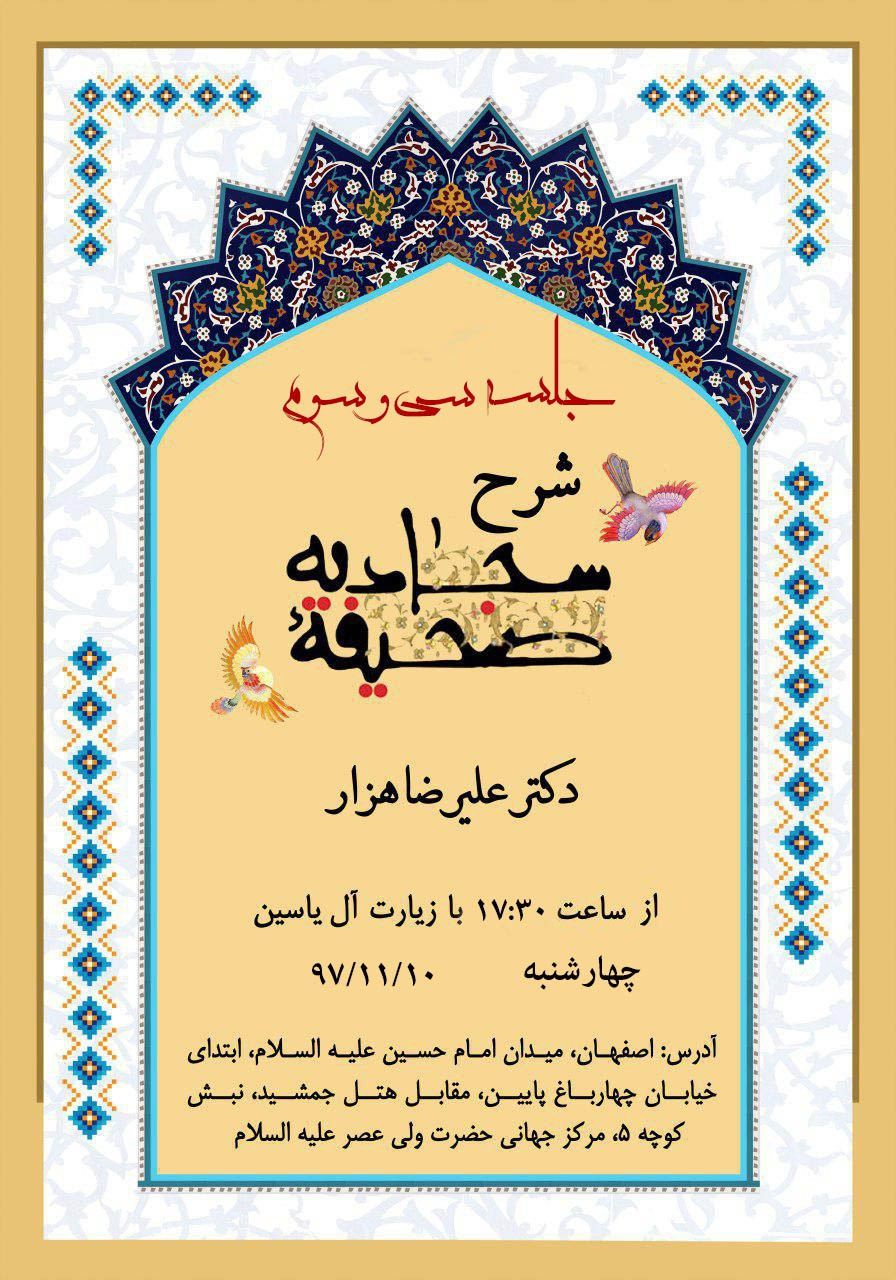 جلسه سی و سوم
شرح
صحیفهٔ
سجادیه
دکتر علیرضا هزار
از ساعت ۱۷:۳۰ با زیارت آل یاسین
چهارشنبه ۹۷/۱۱/۱۰
آدرس: اصفهان، میدان امام حسین علیه السلام، ابتدای
خیابان چهارباغ پایین، مقابل هتل جمشید، نبش
کوچه ۵، مرکز جهانی حضرت ولی عصر علیه السلام